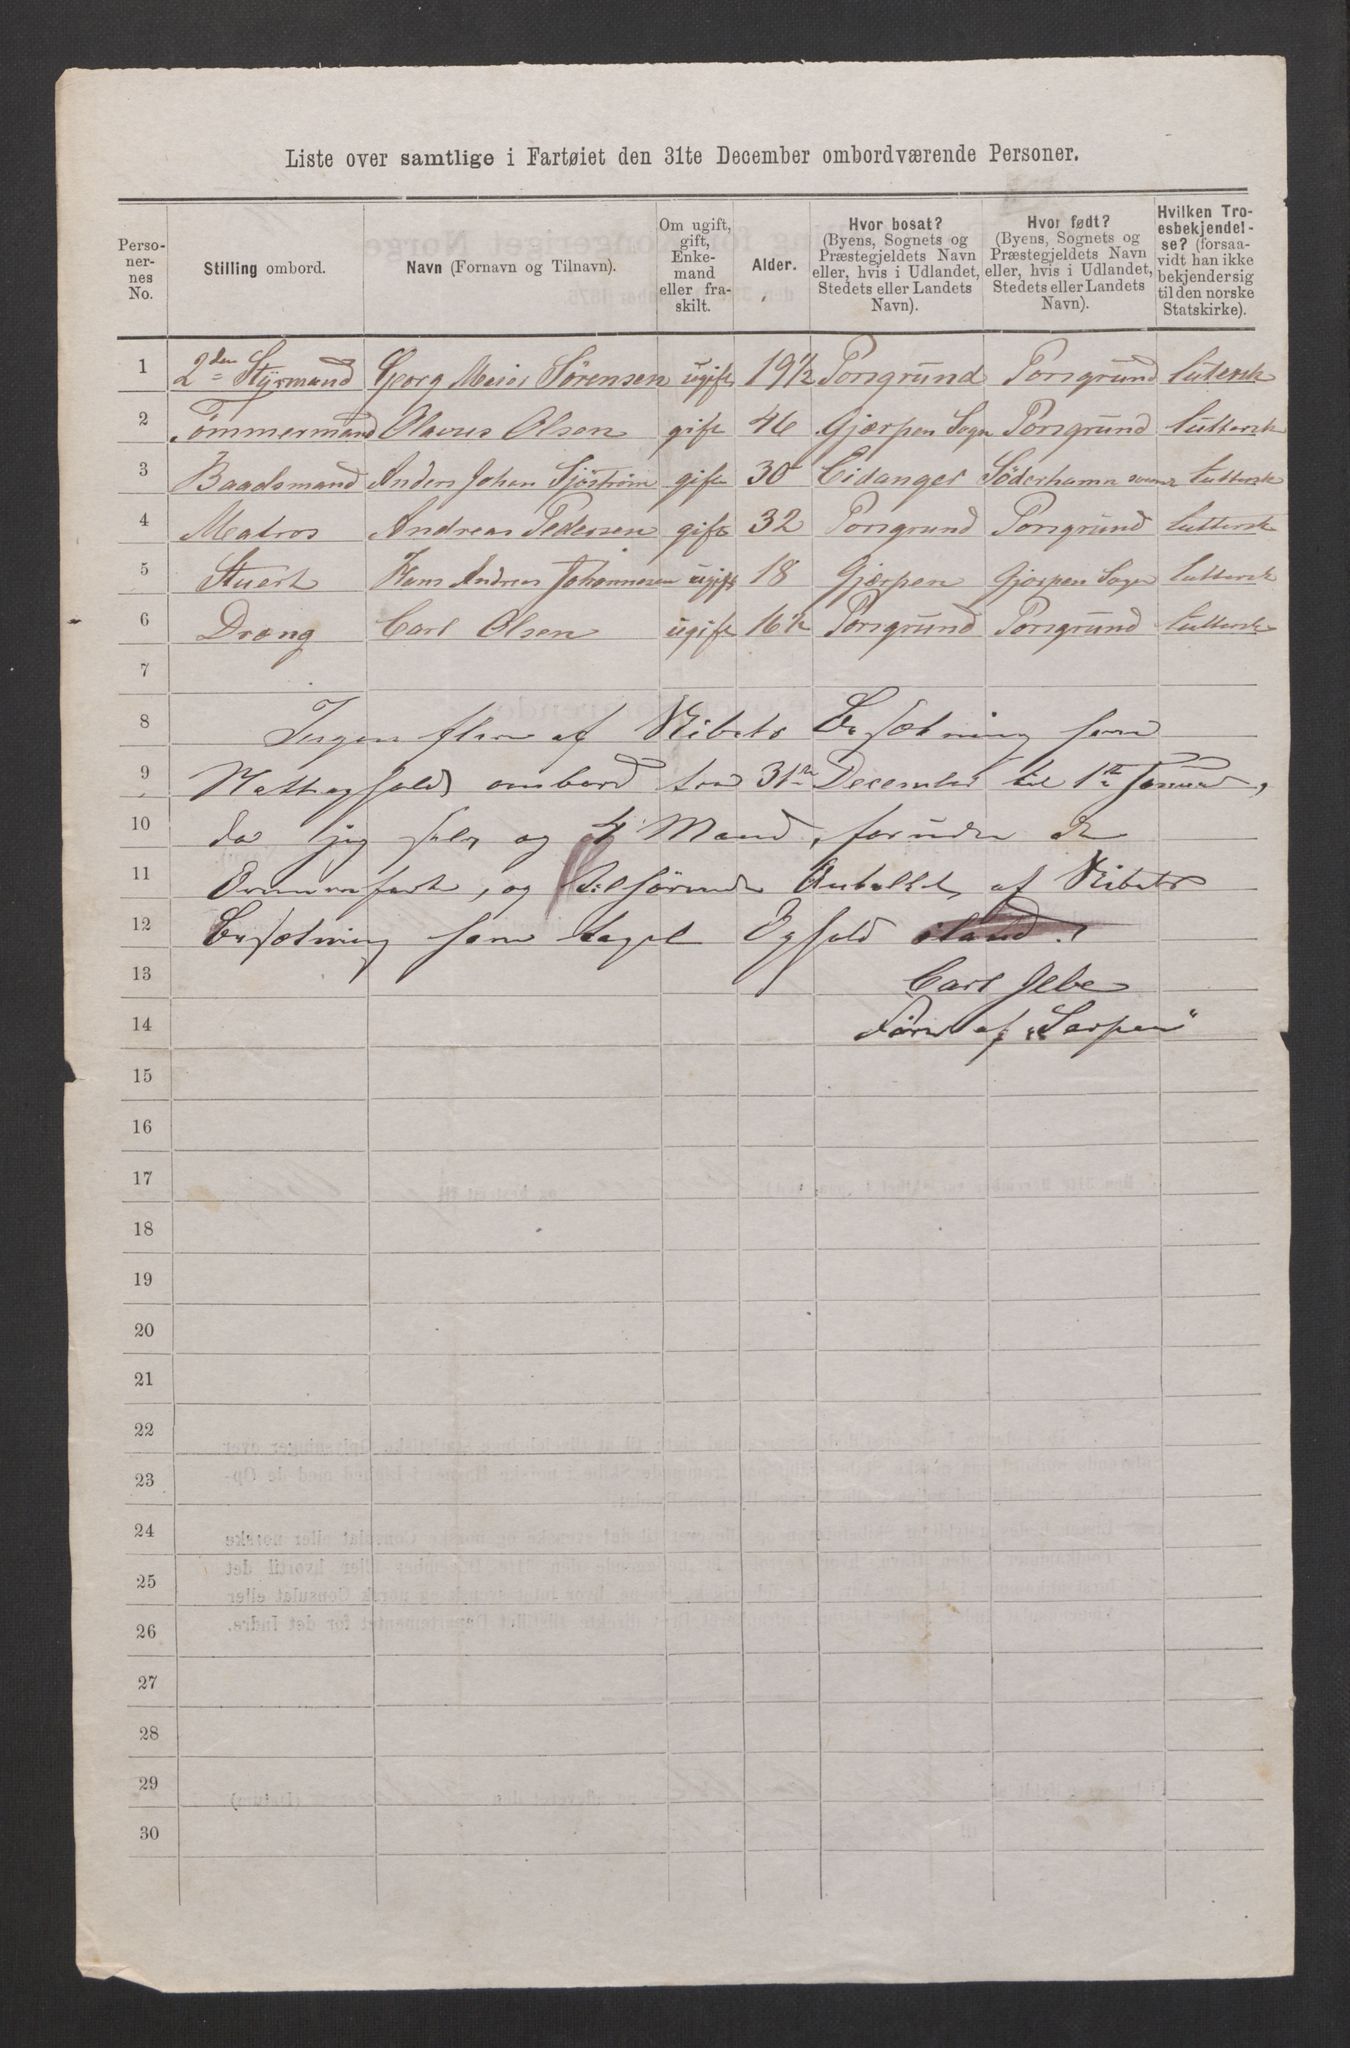 Liste over samtlige i Fartøiet den 31te December ombordværende Personer.
Personernes No. | Stilling ombord. | Navn (Fornavn og Tilnavn). | Om ugift, gift, Enkemand eller fraskilt. | Alder. | Hvor bosat? (Byens, Sognets og Præstegjeldets Navn eller, hvis i Udlandet, Stedets eller Landets Navn). | Hvor født? (Byens, Sognets og Præstegjeldets Navn eller, hvis i Udlandet, Stedets eller Landets Navn). | Hvilken Troesbekjendelse? (forsaavidt han ikke bekjender sig til den norske Statskirke).
1 2den Styrmand Georg Sørensen ugift 19½ Porsgrund Porsgrund lutersk
2 Tømmermand Olaves Olsen gift 46 Gjærpen Sogn Porsgrund luttersk
3 Baadsmand Anders Johan Sjöström gift 30 Eidanger Söderhamn luttersk
4 Matros Andreas Pedersen gift 32 Porsgrund Porsgrund luttersk
5 Stuert Hans Andreas Johannesen ugift 18 Gjærpen Gjærpen Sogn luttersk
6 Dræng Carl Olsen ugift 16½ Porsgrund Porsgrund luttersk
7
8 Ingen flere af Skibets Besætning havde
9 Natteophold ombord fra 31te December til 1te Januar,
10 da jeg selv og 4 Mand, foruden
11 og tilhørende Antallet af Skibets
12 Besætning havde taget Ophold iland.
13 Carl Jebe
14 Fører af "Sarpen"
15
16
17
18
19
20
21
22
23
24
25
26
27
28
29
30